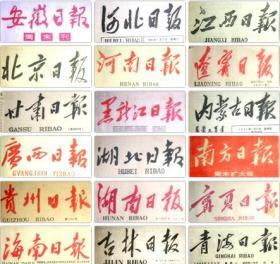 安徽日报
周末刊
河北日報
HEBEI RIBAO
江西日報
JIANGXI RIBAO
北京日报
河南日报
HENAN RIBAO
遼寧日報
LIAONING RIBAO
甘肃日報
GANSU RIBAO
黑龙江日报
内蒙古日報
廣西日報
GVANGJSIH YIZBAO
湖北日報
HUBEI RIBAO
南方日報
周末扩大版
貴州日報
GUIZHOU RIBAO
湖南日報
HUNAN RIBAO
宁夏日報
NINGXIA RIBAO
海南日报
吉林日报
JILIN RIBAO
青海日报
QINGHAI RIBAO